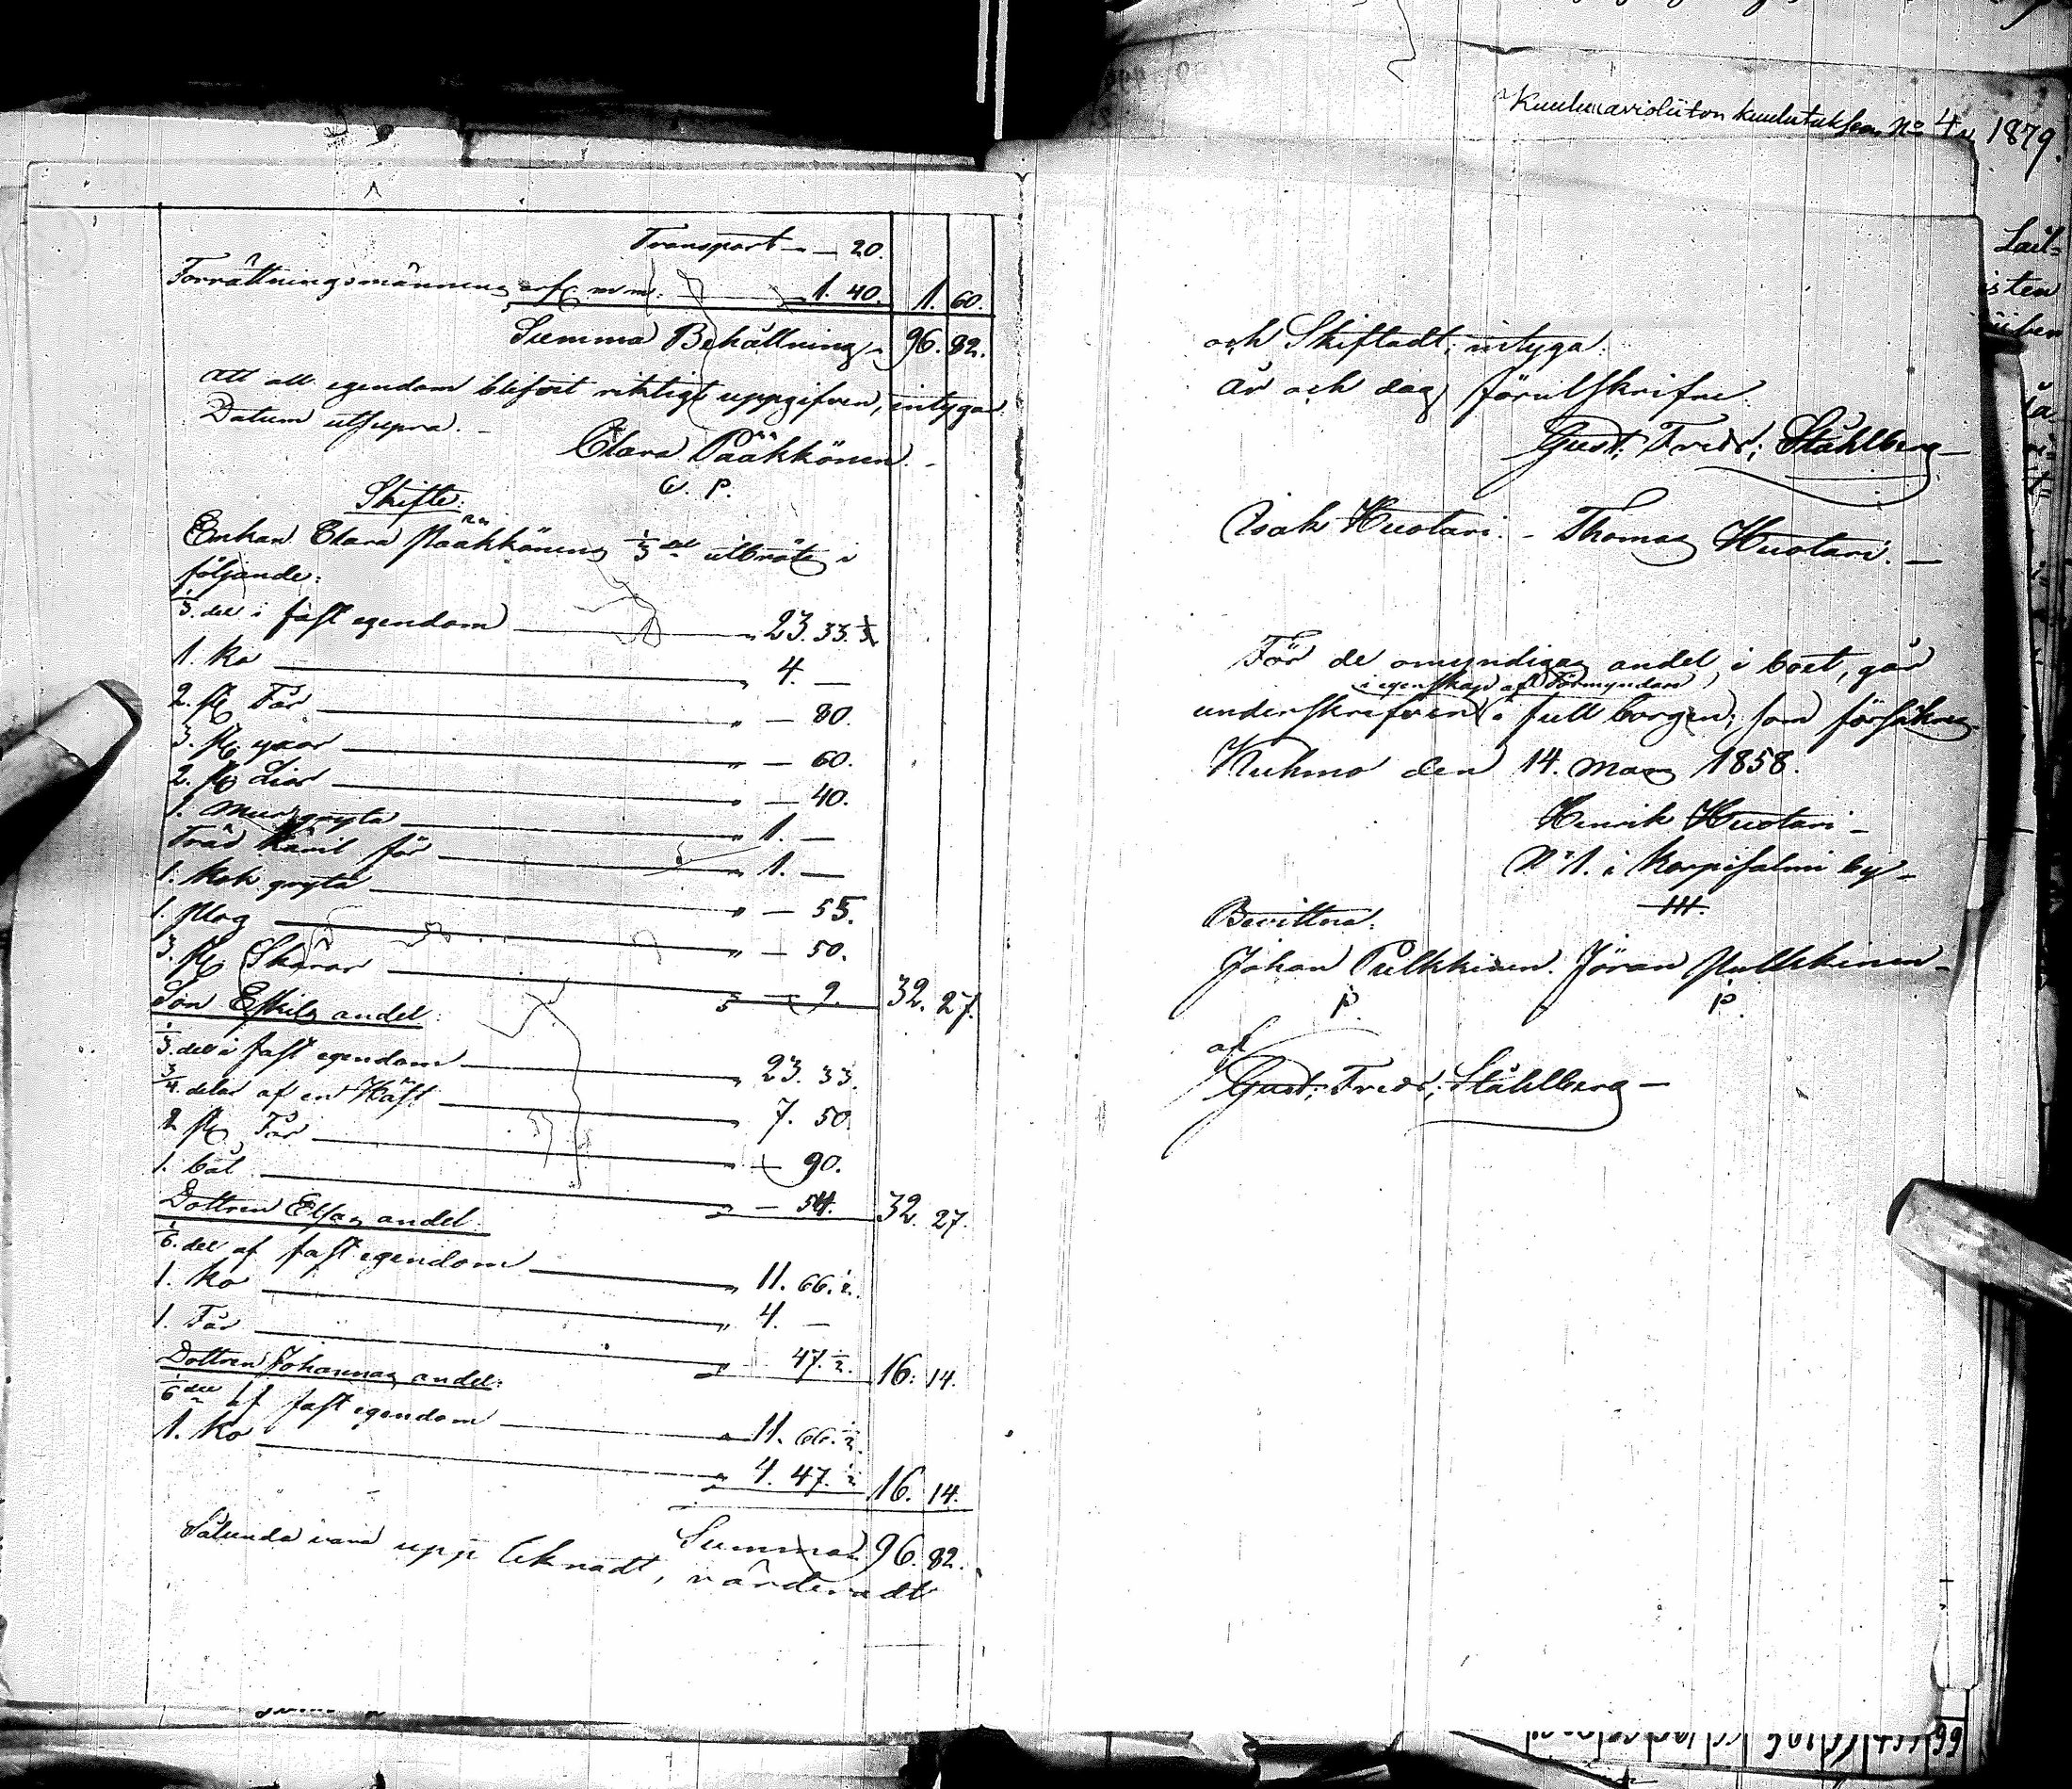 Transport — — 20.
Förrättningsmännens arf. m m. — 1. 40. 1. 60.
Summa Behållning 96. 82.
Att all egendom blifvit riktigt uppgifven, intygar
Datum utsupra. —
Clara Pääkkönen. —
Skifte:
Enkan Clara Pääkkönens 1/3 del utbröts i
följande:
1/3. del i fast egendom — " 23. 33. 1/3
1. Ko — " 4. —
2. st Får — " — 80.
3. st — " — 60.
2. st Liar — " — 40.
1. Mur gryta — " 1. —
Träd Käril för — " 1. —
1. Kok gryta — " — 55.
1. Plog — " — 50.
3. st Skäror — " — 9. 32. 27.
Son Eskils andel:
1/3. del i fast egendom — " 23. 33.
3/4. delar af en Häst — " 7. 50
2 st Får — " — 90.
1. båt — " — 54. 32. 27.
Dottren Elsas andel.
1/6. del af fast egendom — " 11. 66. 1/2.
1. Ko — " 4. —
1. Får — " 47. 1/2. 16. 14.
Dottren Johannas andel:
1/6 del af fast egendom — " 11. 66. 1/2
1. Ko — " 4. 47. 1/2 16. 14.
Summa 96. 82.
Sålunda vara upp teknadt, värderadt
Kuulu avioliiton kuulutuksen No 4 1879.
och Skiftadt; intyga:
år och dag förutskrifne.
Gust: Fredr: Ståhlberg —
Isak Huotari. - Thomas Huotari. —
För de omyndigas andel i boet, går
i egenskap af Förmyndare
underskrifven i full borgen; som försäkras
Kuhmo den 14. Maj 1858.
Henrik Huotari —
No 1. i Korpisalmi by —
Bevittna:
Johan Pulkkinen. Jöran Pulkkinen —
af
Gust: Fredr: Ståhlberg —